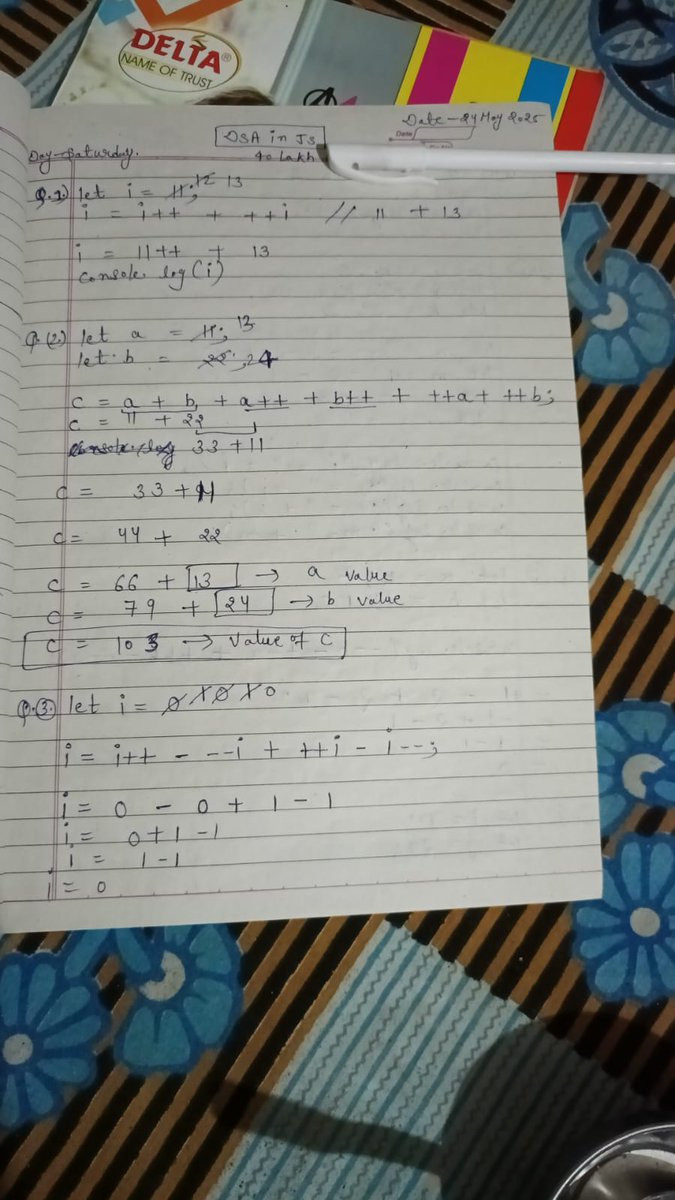 DELTA®
NAME OF TRUST
Date - 24 May 2025
DSA in JS
Date
Day - Saturday.
40 Lakh
Q.1) let i = 11; 12 13
i = i++ + ++i // 11 + 13
i = 11++ + 13
console.log(i)
Q.(2.) let a = 11; 13
let b = 22; 24
c = a + b + a++ + b++ + ++a + ++b;
c = 11 + 22
console.log 33 + 11
c = 33 + 11
c = 44 + 22
c = 66 + 13 → a value
c = 79 + 24 → b value
c = 103 → value of c
Q.3. let i = 0 1 0 1 0
i = i++ - --i + ++i - i--;
i = 0 - 0 + 1 - 1
i = 0+1-1
i = 1-1
i = 0